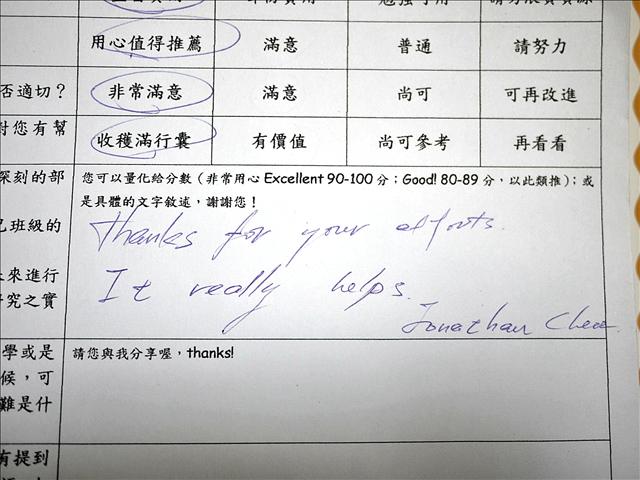 用心值得推薦 滿意 普通 請努力
否適切？ 非常滿意 滿意 尚可 可再改進
對您有幫 收穫滿行囊 有價值 尚可參考 再看看
深刻的部
您可以量化給分數（非常用心 Excellent 90-100 分；Good! 80-89 分，以此類推）；或
是具體的文字敘述，謝謝您！
班級的
Thanks for your efforts.
來進行
It really helps.
究之實
Jonathan
學或是 請您與我分享喔，thanks!
候，可
難是什
有提到